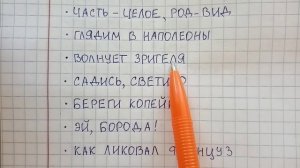 · ЧАСТЬ – ЦЕЛОЕ, РОД-ВИД
· ГЛЯДИМ В НАПОЛЕОНЫ
· ВОЛНУЕТ ЗРИТЕЛЯ
· САДИСЬ,
· БЕРЕГИ
· ЭЙ, БОРОДА!
· КАК ЛИКОВАЛ